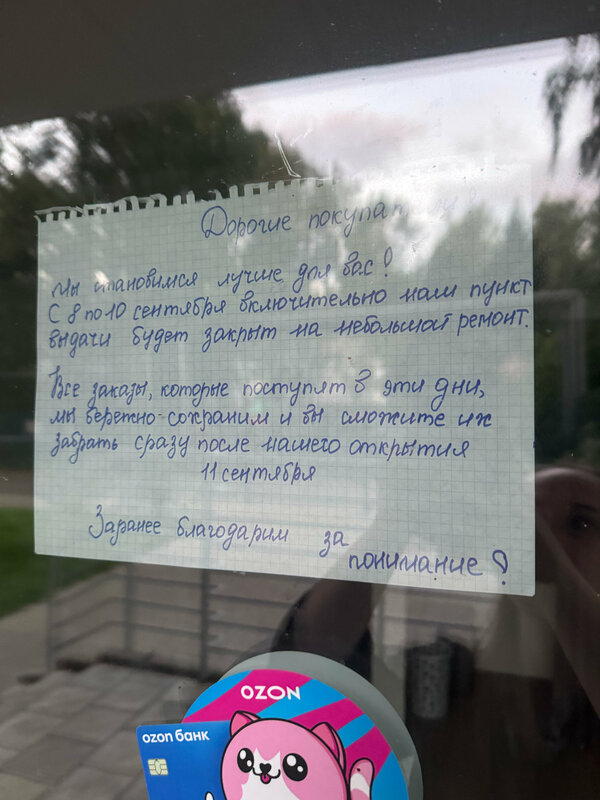 Дорогие покупат
Мы становимся лучше для вас!
С 8 по 10 сентября включительно наш пункт
выдачи будет закрыт на небольшой ремонт.
Все заказы, которые поступят в эти дни,
мы бережно сохраним и вы сможите их
забрать сразу после нашего открытия
11 сентября
Заранее благодарим за
понимание!
OZON
ozon банк